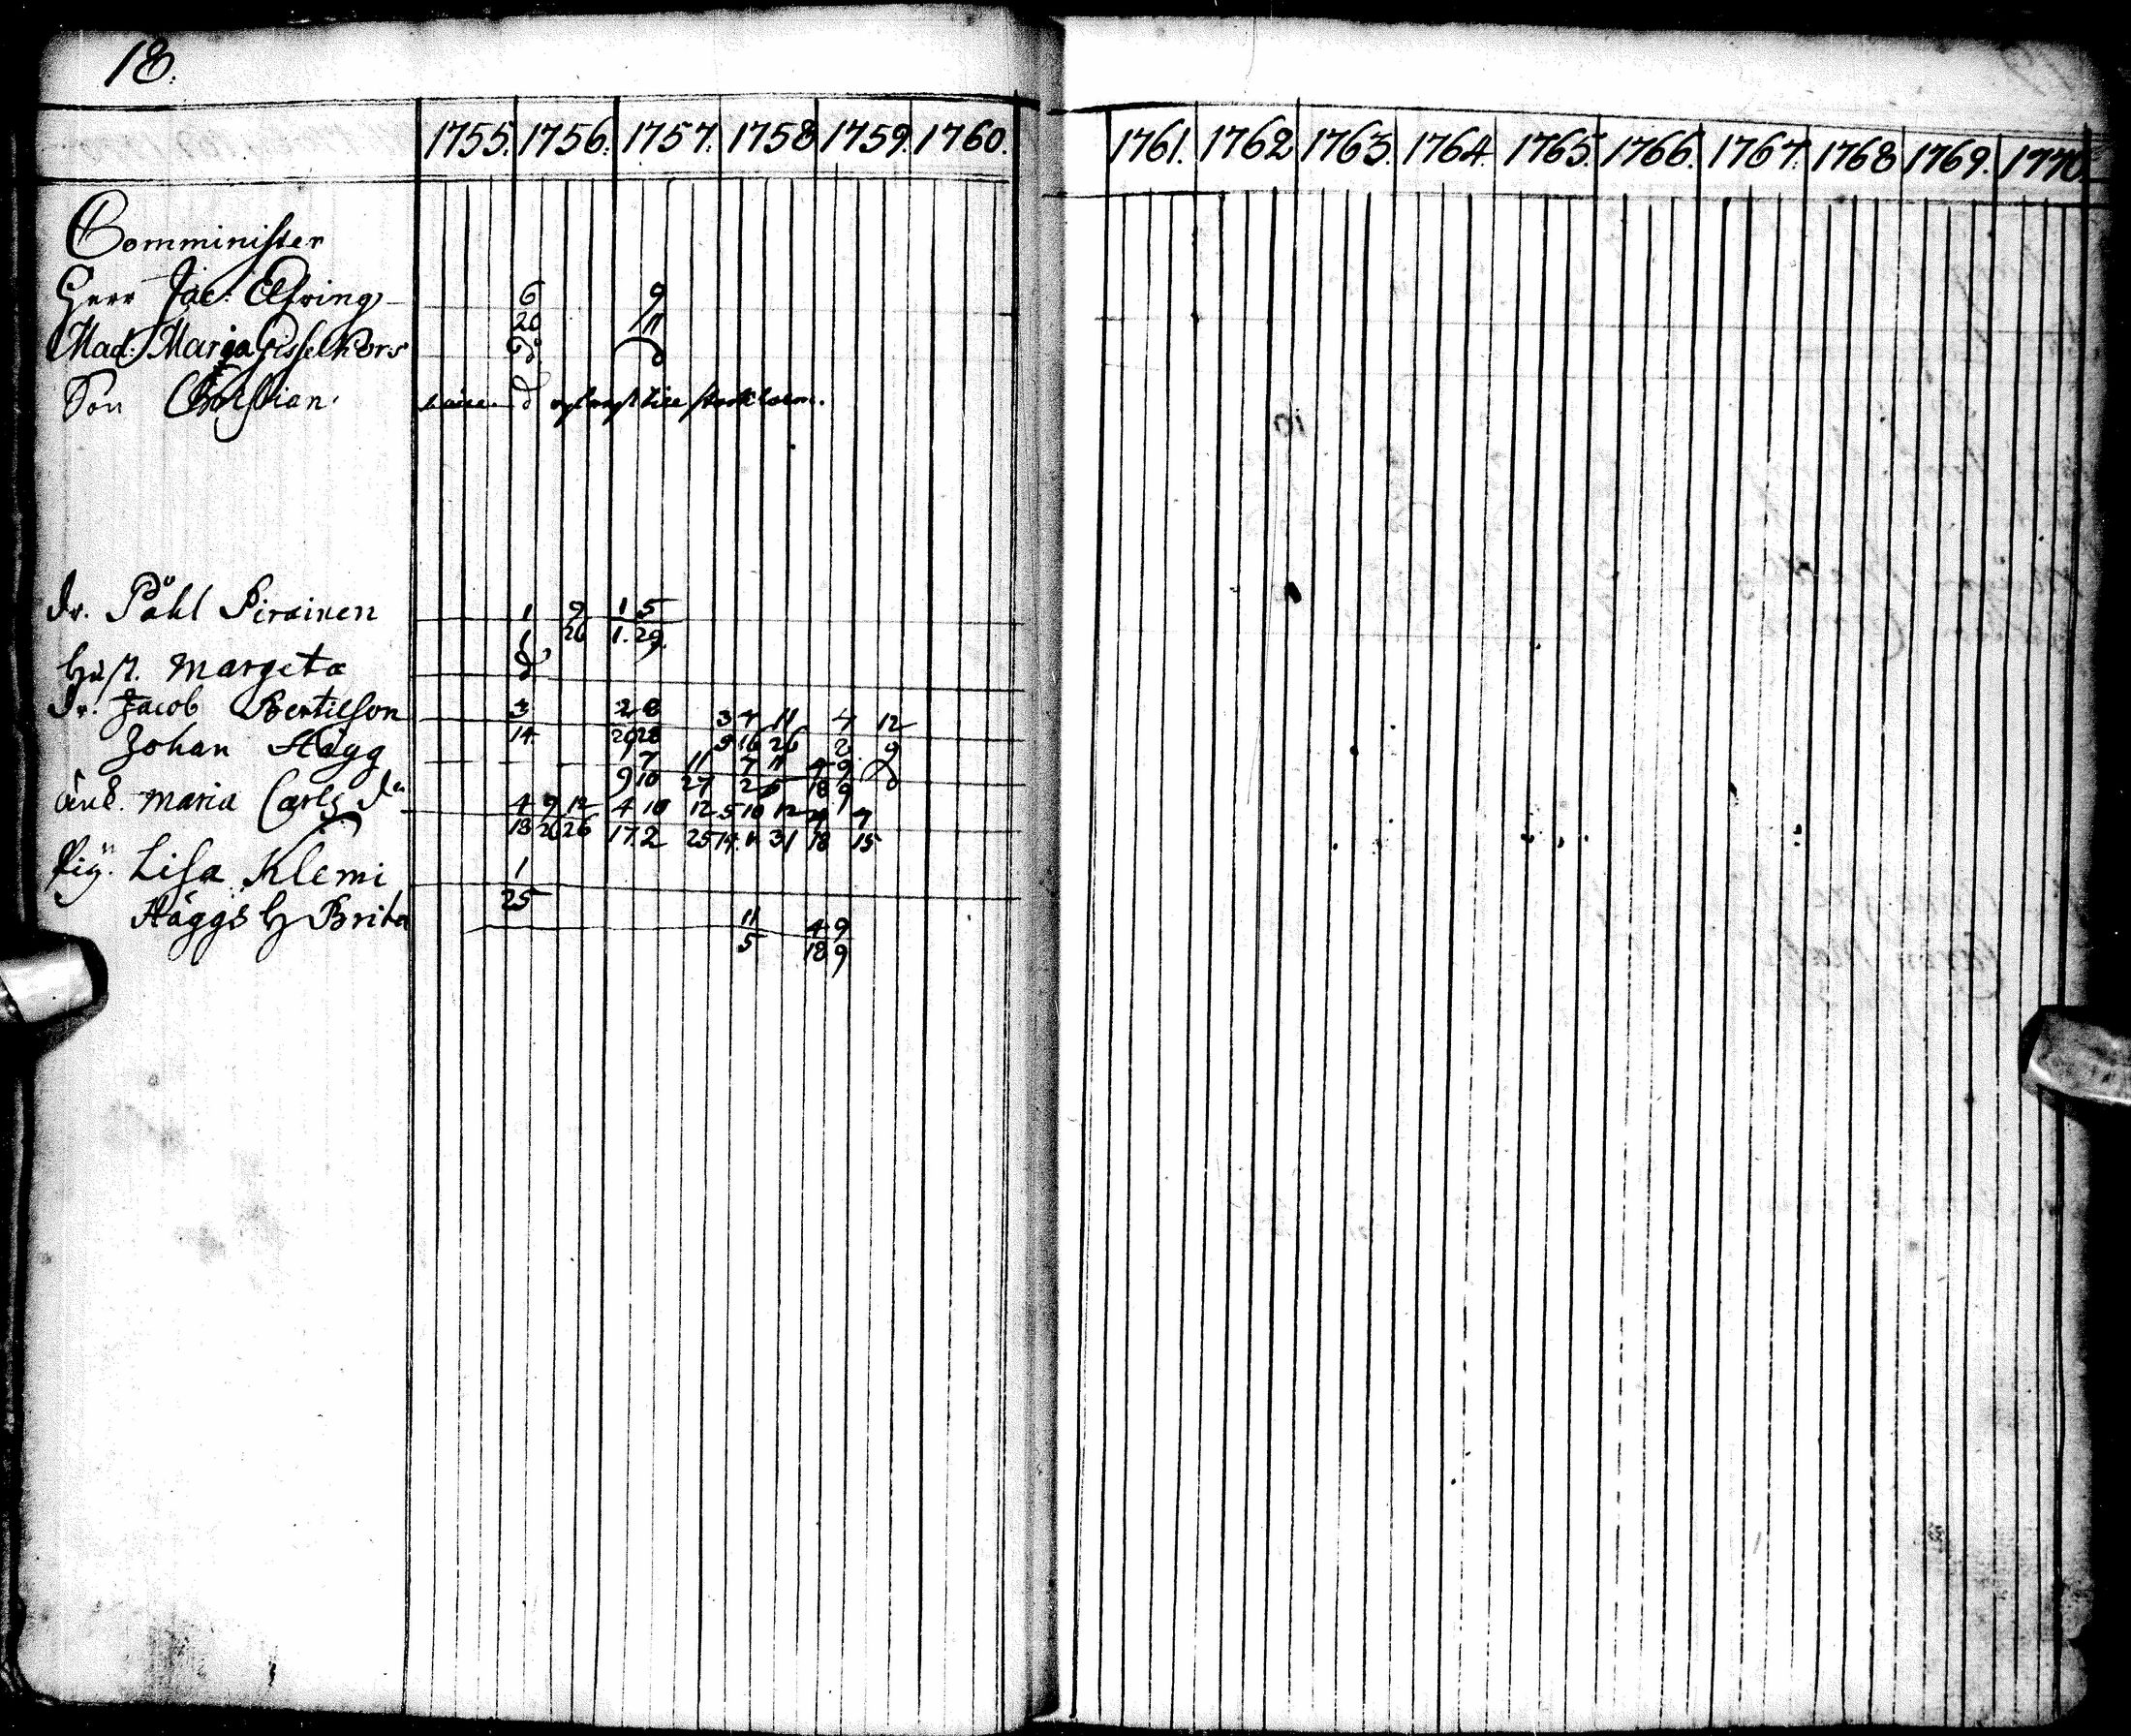 18.
1755. 1756. 1757. 1758 1759. 1760. 1761. 1762 1763. 1764. 1765. 1766. 1767. 1768 1769. 1770.
Comminister
Herr Jac: Elfving
6 9
20 11
Mad: Marga Gisselkors
d d
Son Christian.
d
Dr. Påhl Pirainen
1 9 1 5
1 26 1. 29.
Hust. Margeta
d
Dr. Jacob Bertilson
3 2 8 3 7 11 4 12
14 20 28 9 16 26 2 9
Johan Hägg
7 11 7 11 4 9
9 10 27 2 6 18 9
änk. Maria Carls Dr
4 9 12 4 10 12 5 10 12 4 7
18 26 26 17. 2 25 14. 1 31 18 15
Pig. Lisa Klemi
1
25
Häggs H Brita
11 4 9
5 18 9